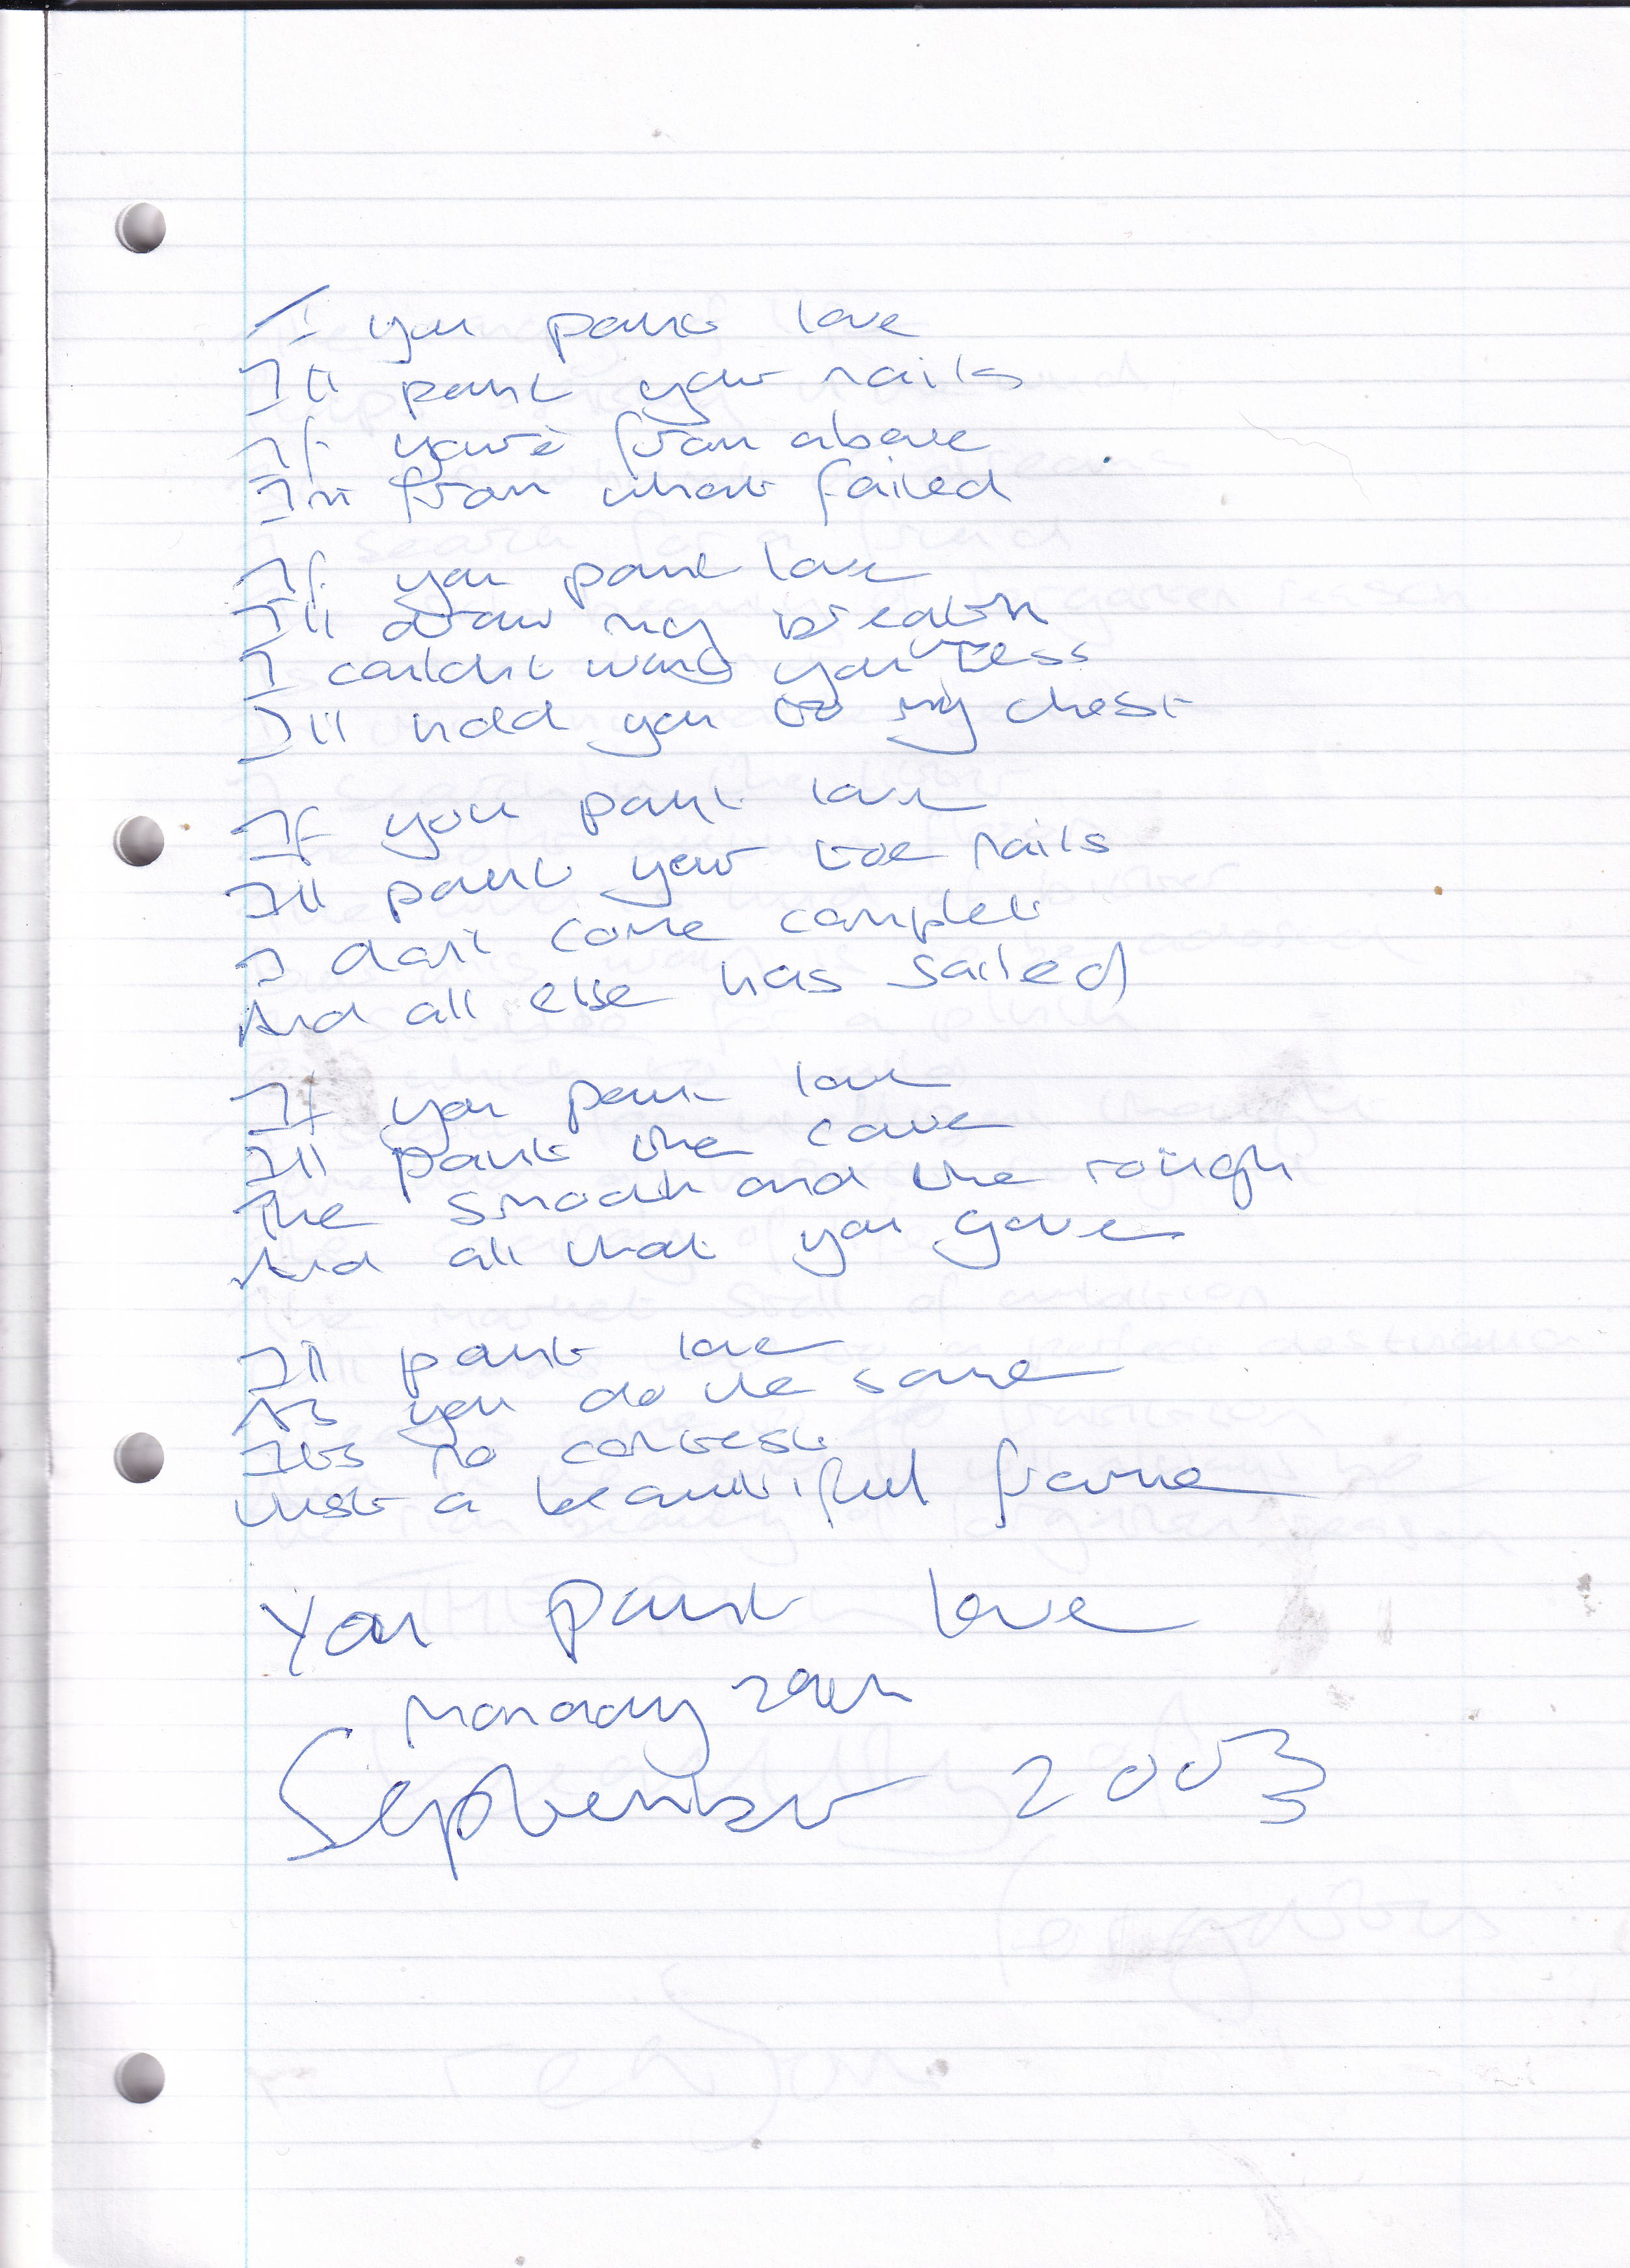 If you paint love
I'll paint your nails
If your'e from above
I'm from what failed
If you paint love
I'll draw my breath
I couldn't want you less
I'll hold you to my chest
If you paint love
I'll paint your toe nails
I don't come complete
And all else has sailed
If you paint love
I'll paint the cave
The smooth and the rough
And all that you gave
I'll paint love
As you do the same
Its no contest
Just a beautiful frame
You paint love
Monday 29th
September 2003